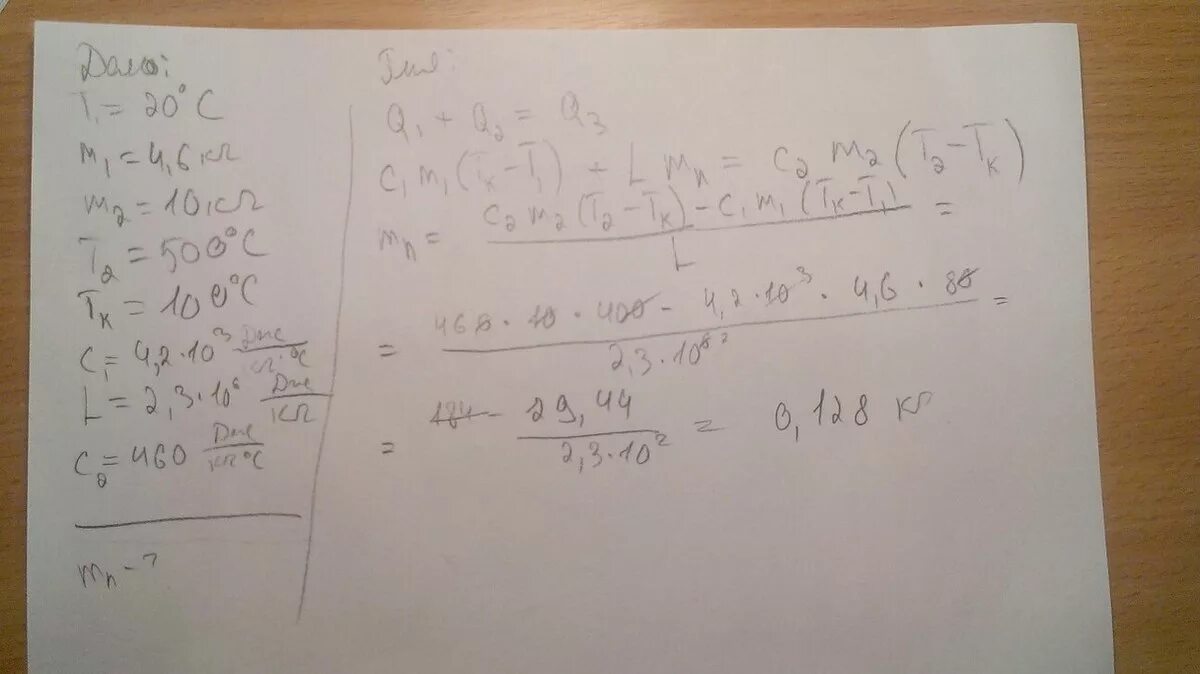 Дано:
T₁ = 20°C
m₁ = 4,6 кг
m₂ = 10 кг
T₂ = 500°C
Tк = 100°C
C₁ = 4,2·10³ Дж/кг·°C
L = 2,3·10⁶ Дж/кг
C₂ = 460 Дж/кг°C
mп - ?
Q₁ + Q₂ = Q₃
C₁m₁(Tк-T₁) + Lmп = C₂m₂(T₂-Tк)
mп = C₂m₂(T₂-Tк)-C₁m₁(Tк-T₁) / L =
= 460·10·400 - 4,2·10³·4,6·80 / 2,3·10⁶ ² =
= 184 - 29,44 / 2,3·10² = 0,128 кг